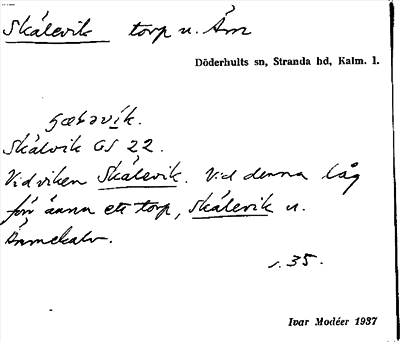 Skålevik torp u. Äm
Döderhults sn, Stranda hd, Kalm. l.
Skålvik GS 22.
Vid viken Skålevik. Vid denna låg
förr ännu ett torp, Skålevik u.
Ämmekalv.
s. 35.
Ivar Modéer 1937